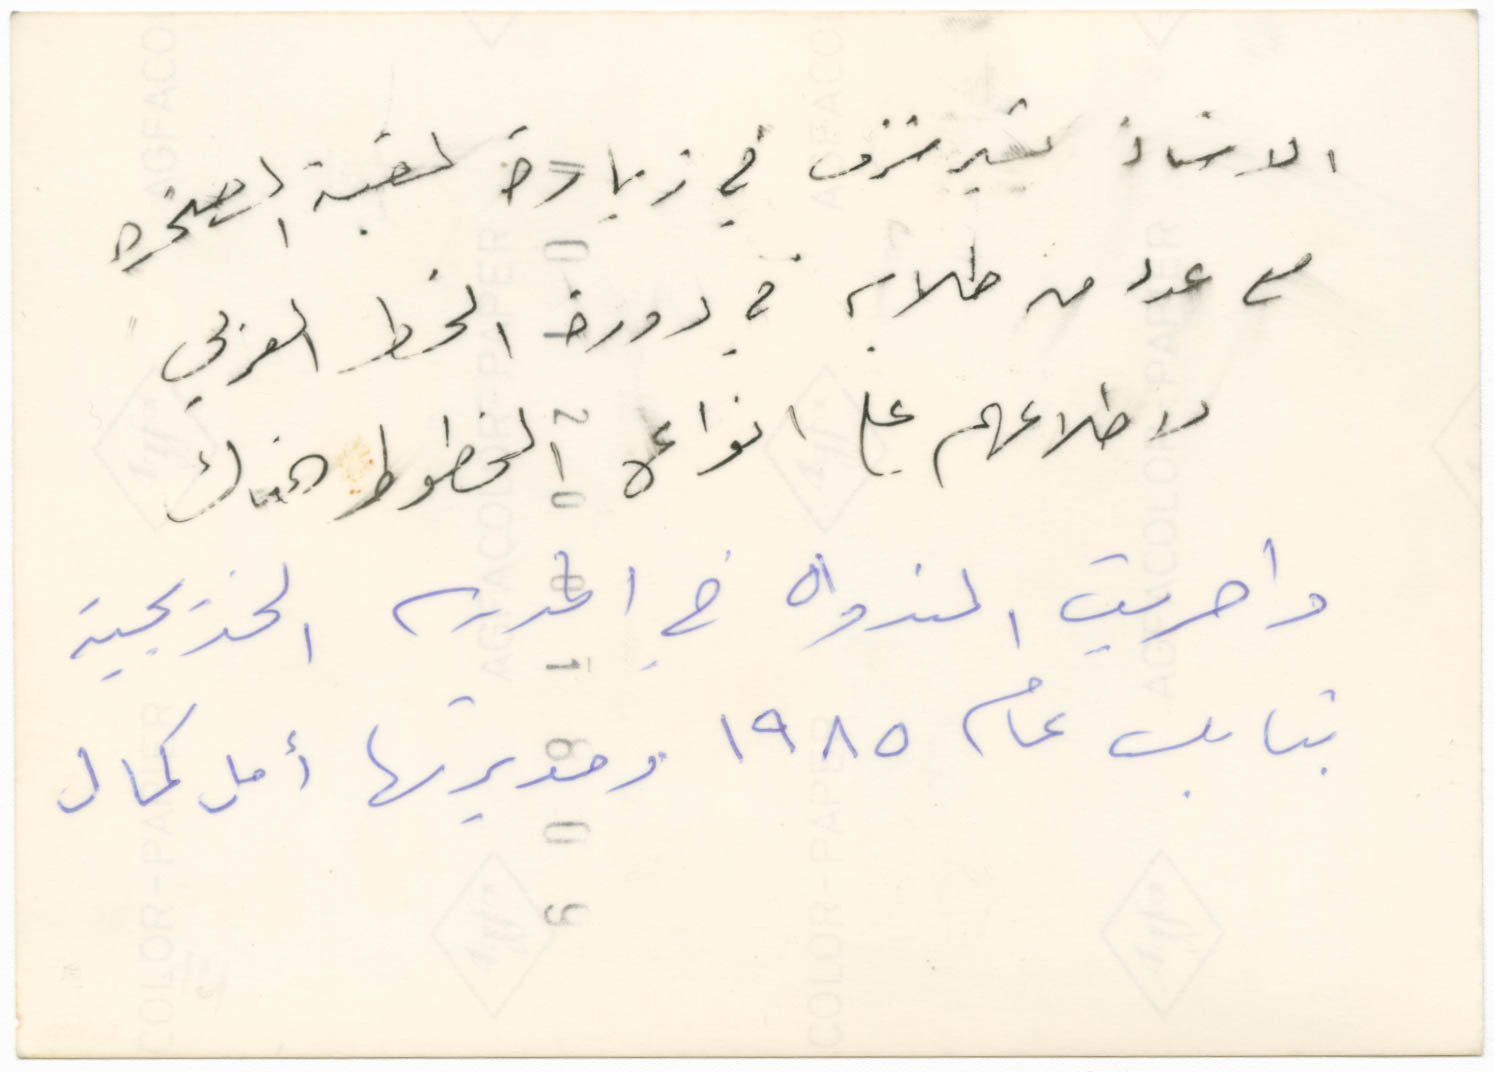 الاستاذ بشير شرف في زيارة لقبة الصخرة
مع عدد من طلابه في دورة الخط العربي
لاطلاعهم على انواع الخطوط هناك
واجريت الندوة في المدرسه الخديجية
بتاب عام ١٩٨٥ ومديرتها أمل كمال
AGFACOLOR-PAPER